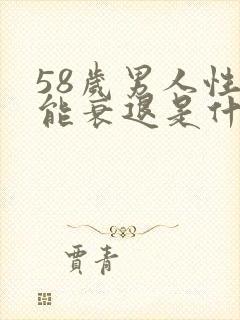 58歲男人性
能衰退是什
賈青